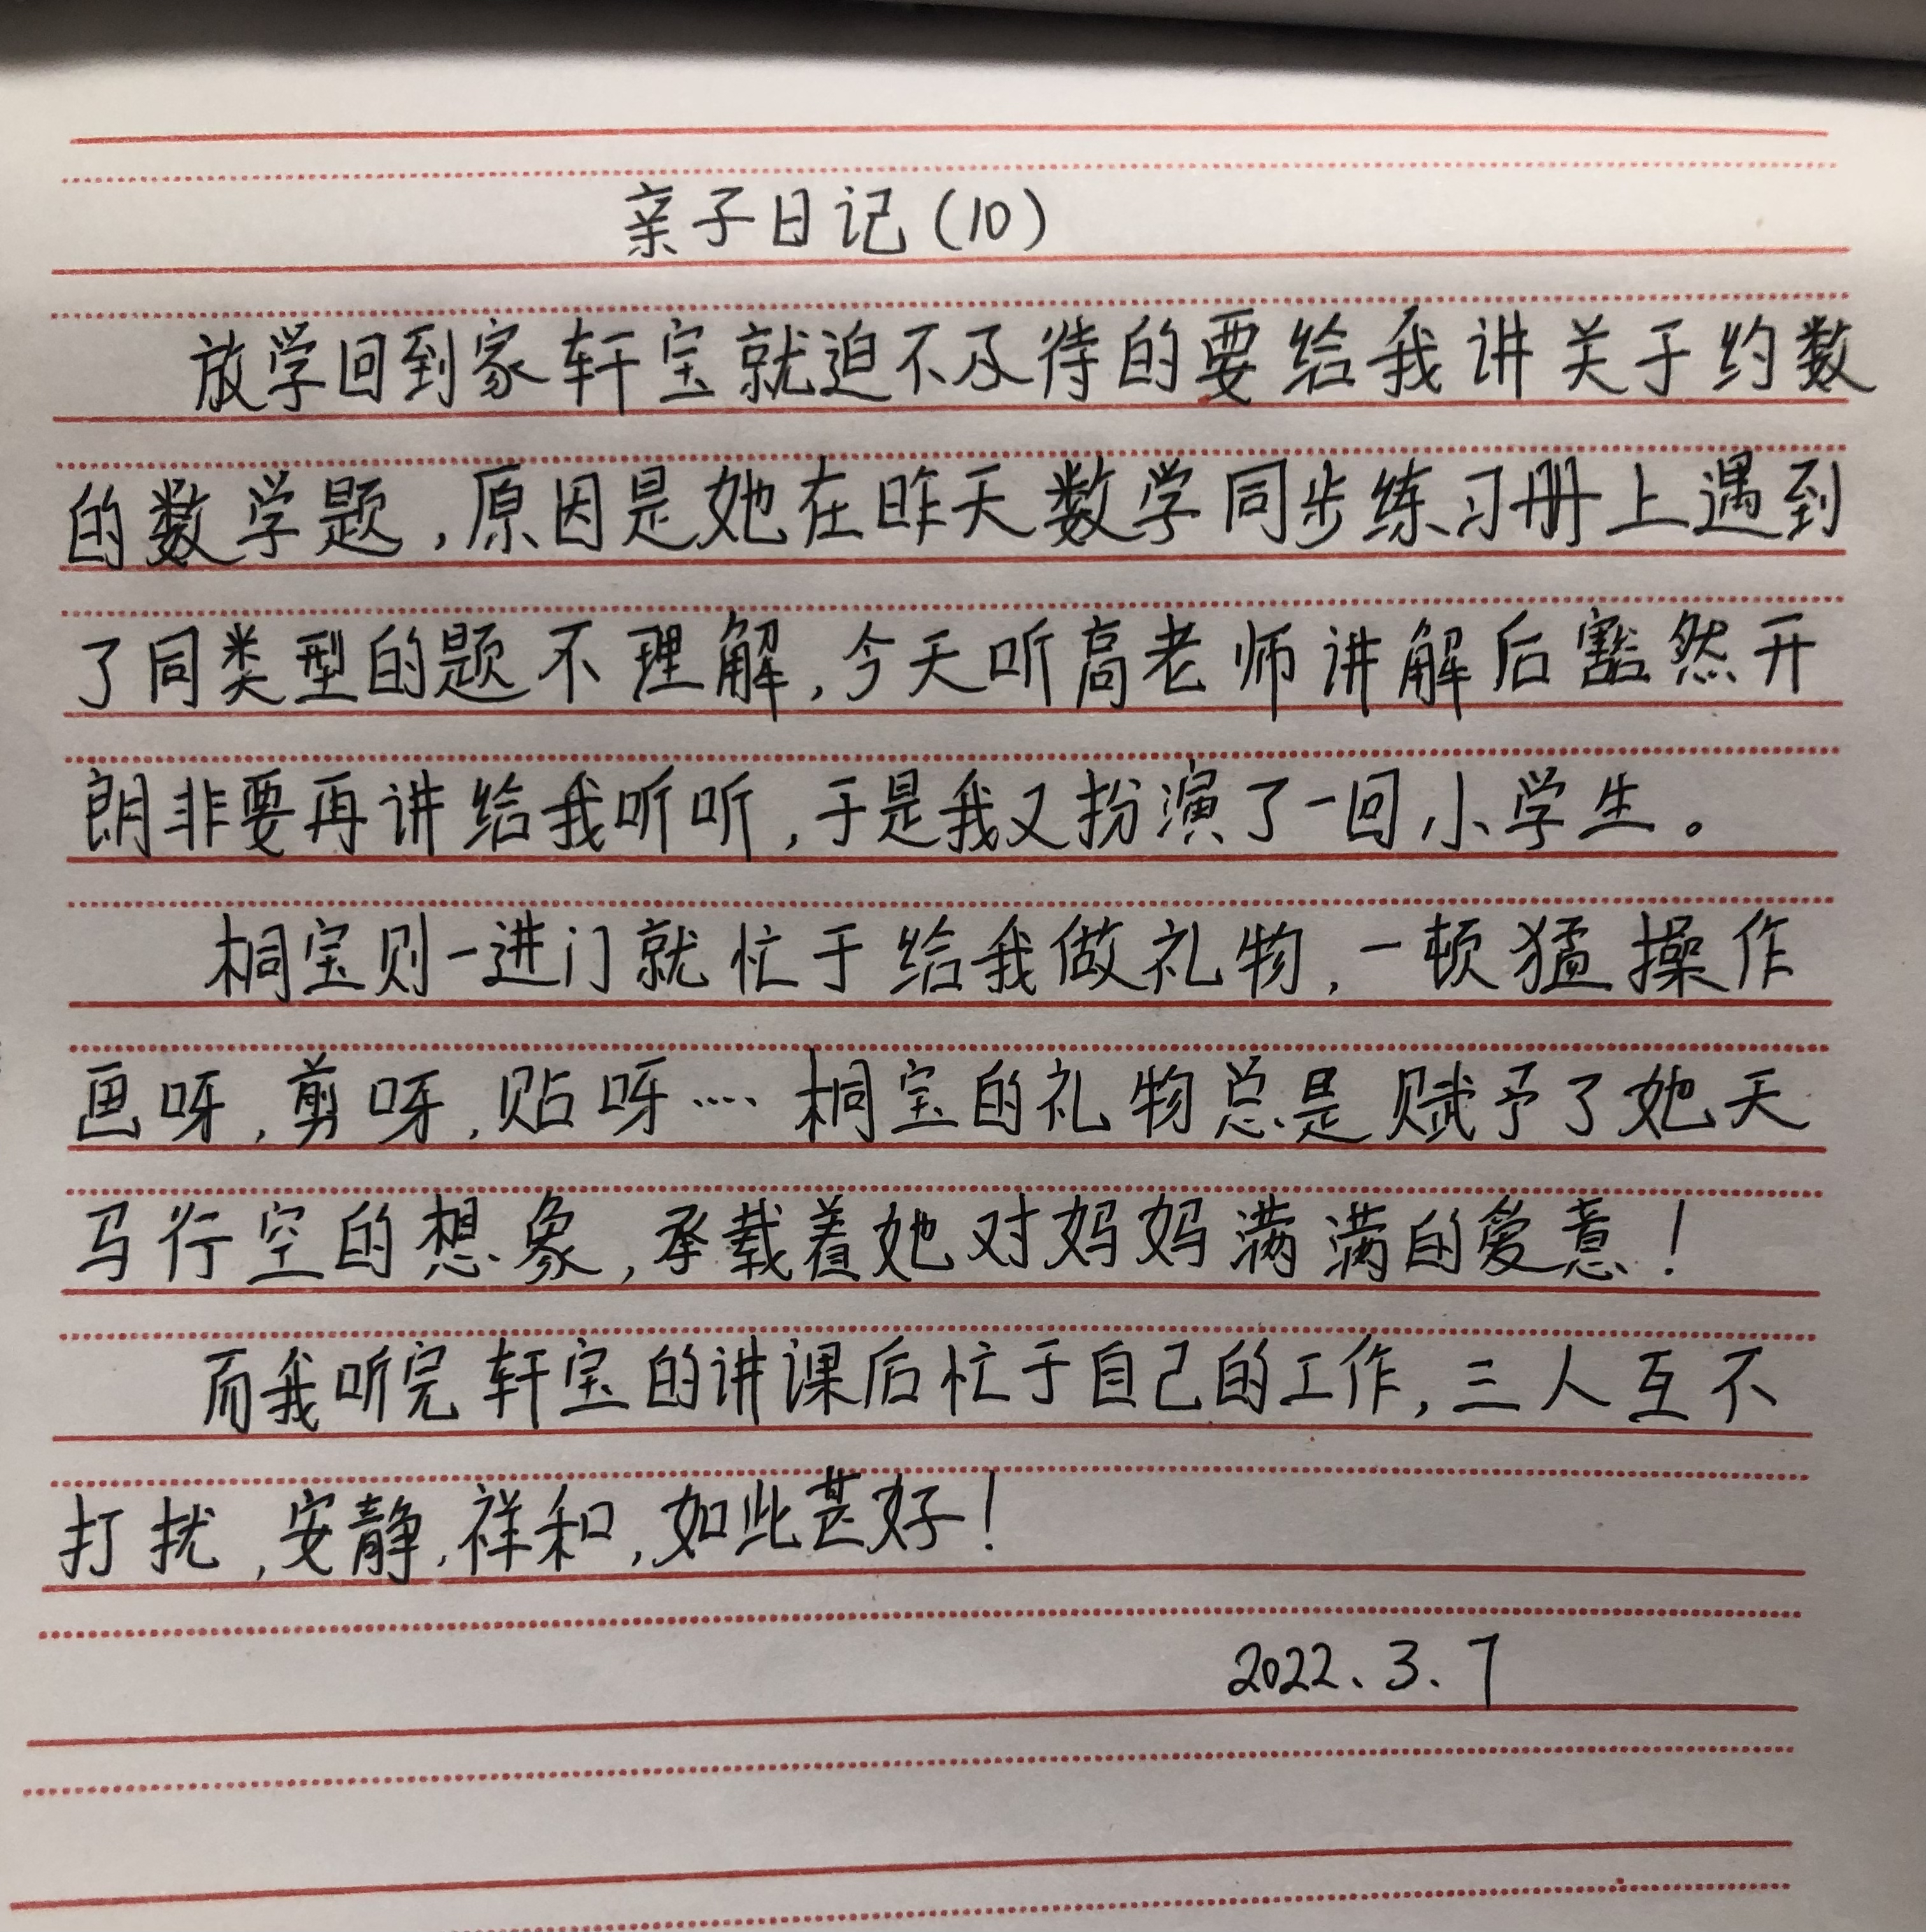 亲子日记(10)
放学回到家轩宝就迫不及待的要给我讲关于约数
的数学题,原因是她在昨天数学同步练习册上遇到
了同类型的题不理解,今天听高老师讲解后豁然开
朗非要再讲给我听听,于是我又扮演了一回小学生。
桐宝则一进门就忙于给我做礼物,一顿猛操作
画呀,剪呀,贴呀…… 桐宝的礼物总是赋予了她天
马行空的想象,承载着她对妈妈满满的爱意!
而我听完轩宝的讲课后忙于自己的工作,三人互不
打扰,安静,祥和,如此甚好!
2022、3、7